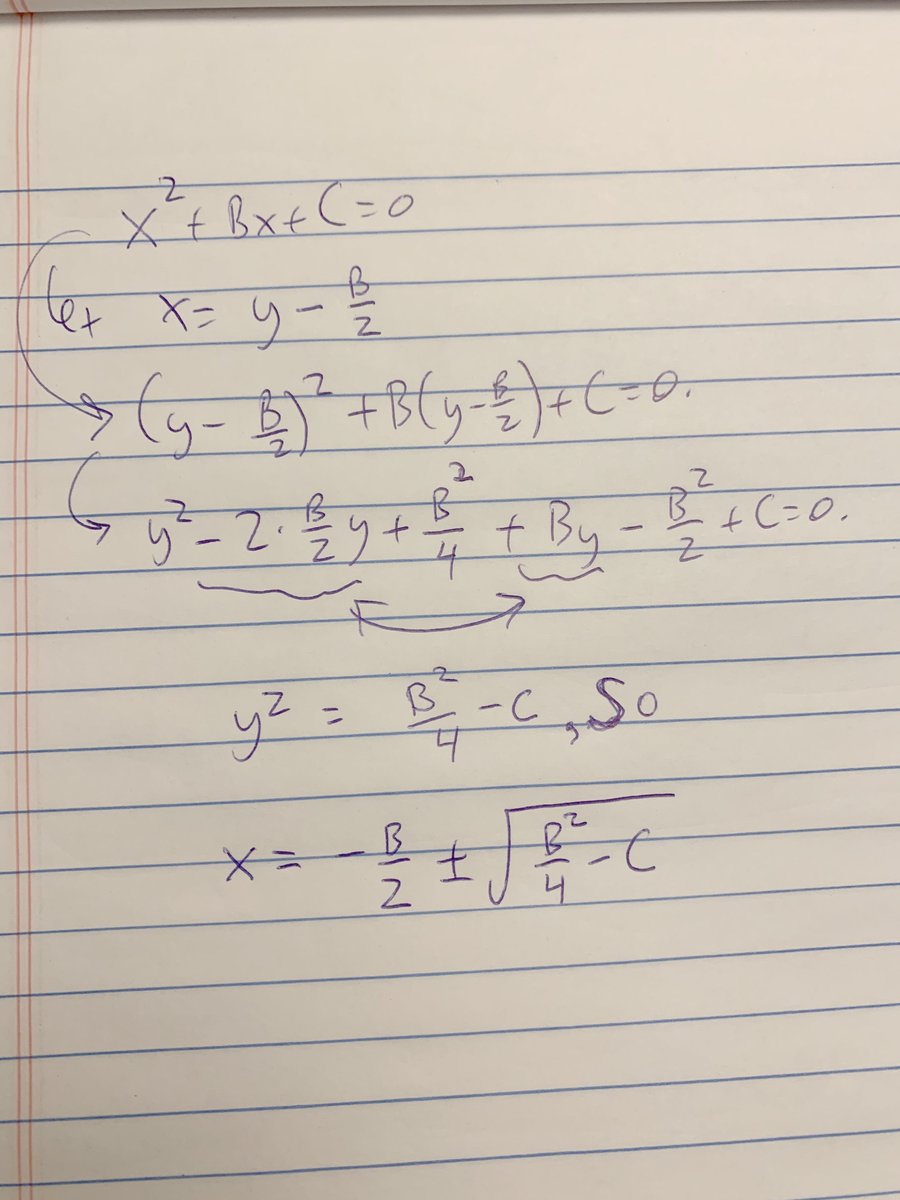 x² + Bx + C = 0
Let x = y - B/2
(y - B/2)² + B(y - B/2) + C = 0.
y² - 2 · B/2 y + B²/4 + By - B²/2 + C = 0.
y² = B²/4 - C, So
x = - B/2 ± √(B²/4 - C)